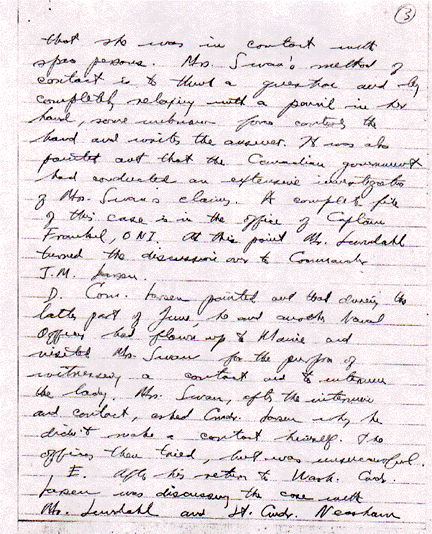 3
that she was in contact with
space persons. Mrs. Swan's method of
contact is to think a question and by
completely relaxing with a pencil in her
hand, some unknown force controls the
hand and writes the answer. It was also
pointed out that the Canadian government
had conducted an extensive investigation
of Mrs. Swan's claims. A complete file
of this case is in the office of Captain
Frankel, ONI. At this point Mr. Lundahl
turned the discussion over to Commander
J.M. Larsen.
D. Com. Larsen pointed out that during the
latter part of June, he and another Naval
Officer had flown up to Maine and
visited Mrs. Swan for the purpose of
witnessing a contact and to interview
the lady. Mrs. Swan, after the interview
and contact, asked Cmdr. Larsen why he
didn't make a contact himself. The
officer then tried, but was unsuccessful.
E. After his return to Wash. Cmdr.
Larsen was discussing the case with
Mr. Lundahl and Lt. Cmdr. Neasham